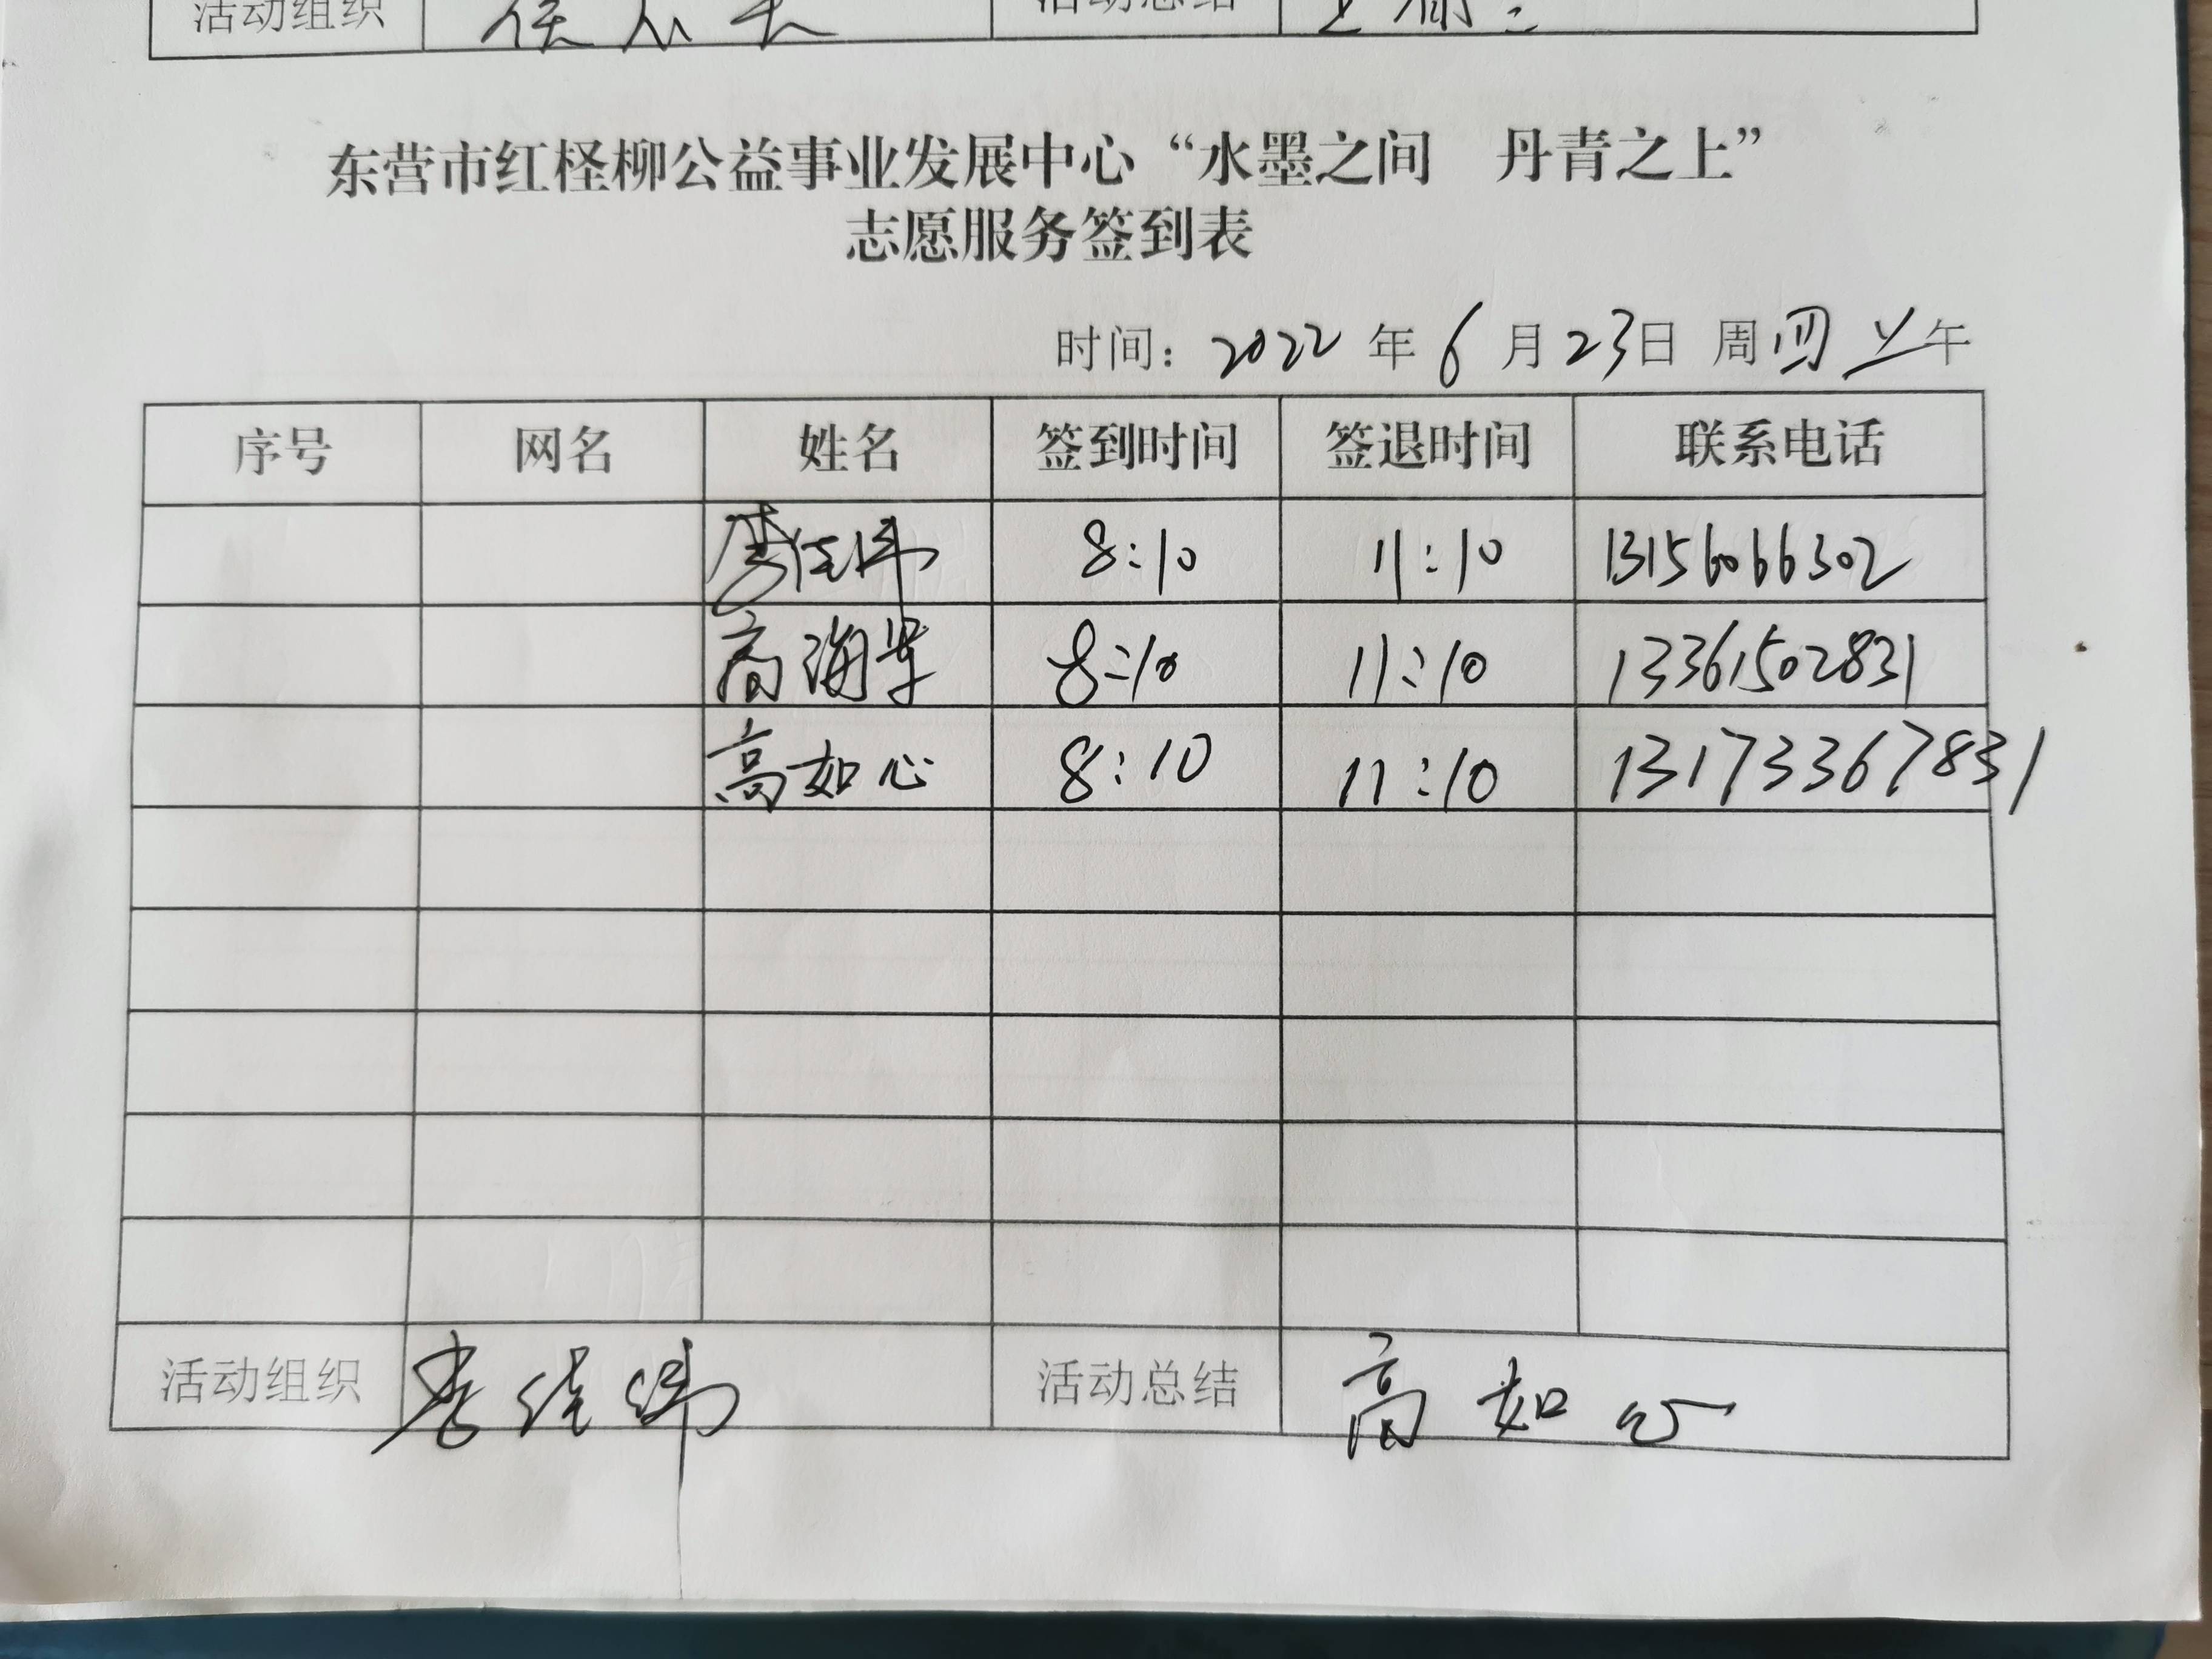 活动组织 活动总结
东营市红柽柳公益事业发展中心“水墨之间 丹青之上”
志愿服务签到表
时间：2022年6月23日 周四上午
序号 网名 姓名 签到时间 签退时间 联系电话
李佳伟 8:10 11:10 13156066302
高海军 8:10 11:10 13361502831
高如心 8:10 11:10 13173367831
活动组织 李佳伟 活动总结 高如心